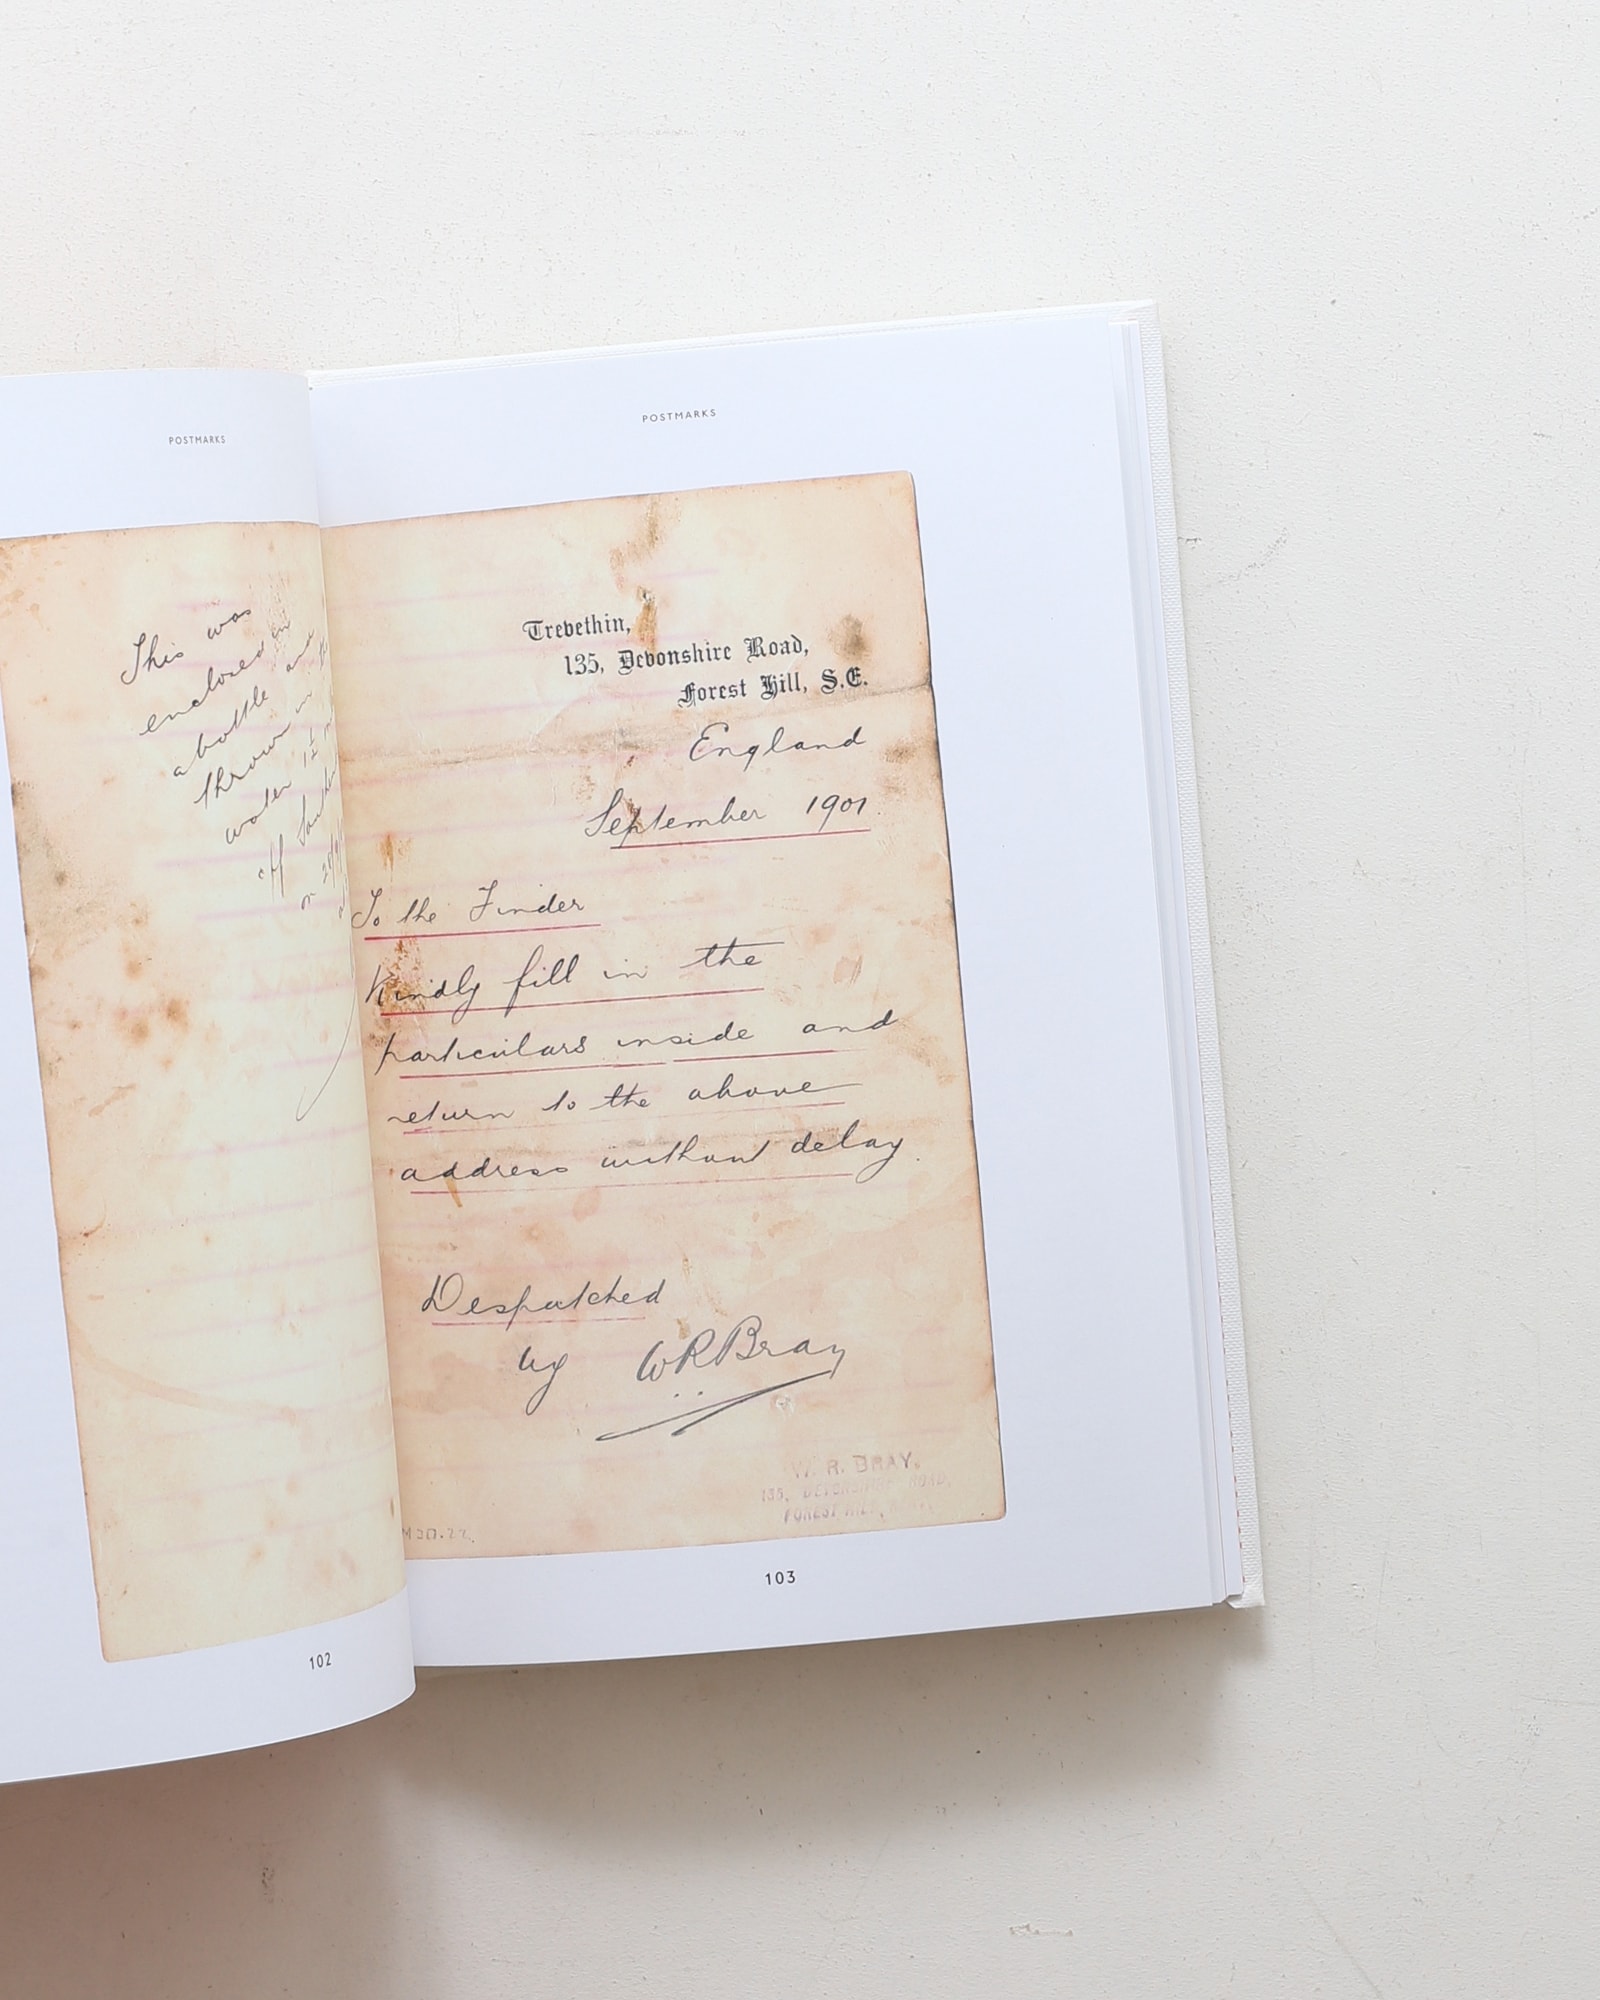 POSTMARKS
This was
enclosed in
a bottle and
thrown in the
water 1½
off
on
102
POSTMARKS
Trevethin,
135, Devonshire Road,
Forest Hill, S.E.
England
September 1901
To the Finder
Kindly fill in the
particulars inside and
return to the above
address without delay.
Despatched
by W R Bray
W. R. BRAY.
135, DEVONSHIRE ROAD,
FOREST HILL,
103